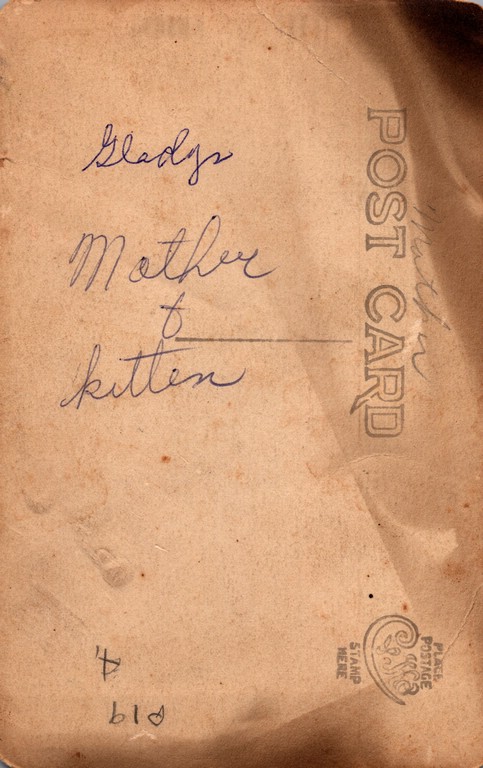 Gladys
Mother
&
kitten
POST CARD
PLACE
POSTAGE
STAMP
HERE